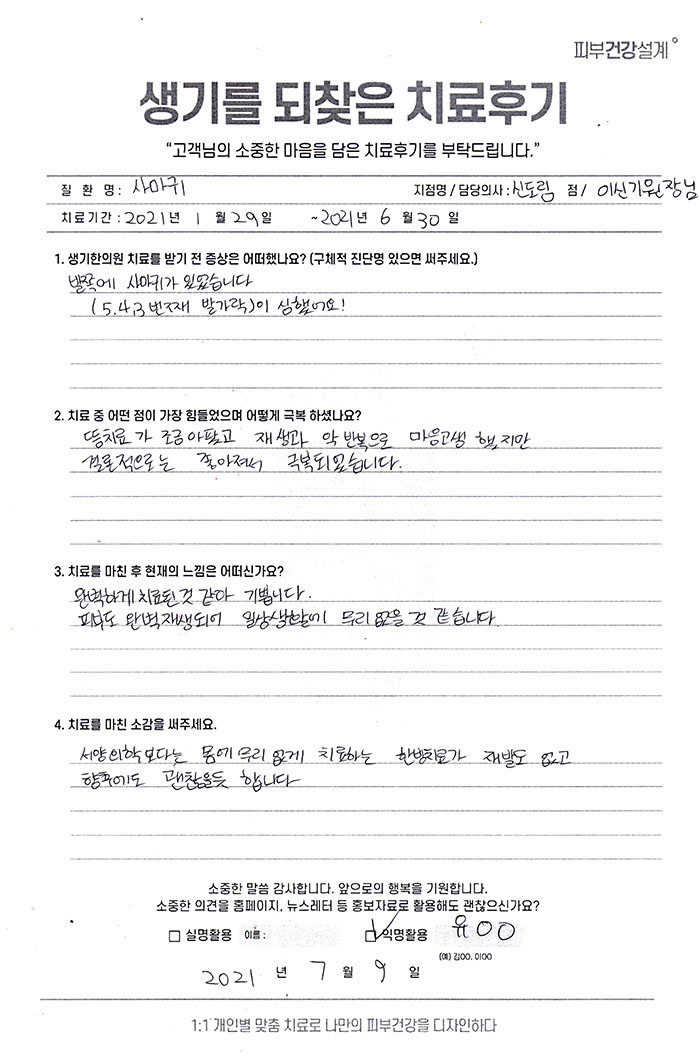 피부건강설계°
생기를 되찾은 치료후기
“고객님의 소중한 마음을 담은 치료후기를 부탁드립니다.”
질 환 명 : 사마귀 지점명 / 담당의사 : 신도림 점 / 이신기원장님
치료기간 : 2021년 1 월 29일 ~2021년 6 월 30 일
1. 생기한의원 치료를 받기 전 증상은 어떠했나요? (구체적 진단명 있으면 써주세요.)
발쪽에 사마귀가 있었습니다
(5,4,3 번째 발가락)이 심했어요!
2. 치료 중 어떤 점이 가장 힘들었으며 어떻게 극복 하셨나요?
뜸치료가 조금아팠고 재생과 악 반복으로 마음고생 했지만
결론적으로는 좋아져서 극복되었습니다.
3. 치료를 마친 후 현재의 느낌은 어떠신가요?
완벽하게 치료된것 같아 기쁩니다.
피부도 완벽재생되어 일상생활에 무리 없을 것 같습니다
4. 치료를 마친 소감을 써주세요.
서양의학보다는 몸에 무리 없게 치료하는 한방치료가 재발도 없고
향후에도 괜찮을듯 합니다
소중한 말씀 감사합니다. 앞으로의 행복을 기원합니다.
소중한 의견을 홈페이지, 뉴스레터 등 홍보자료로 활용해도 괜찮으신가요?
□ 실명활용 이름 : ☑ 익명활용 유OO
(예) 김OO, 이OO
2021 년 7 월 9 일
1:1 개인별 맞춤 치료로 나만의 피부건강을 디자인하다